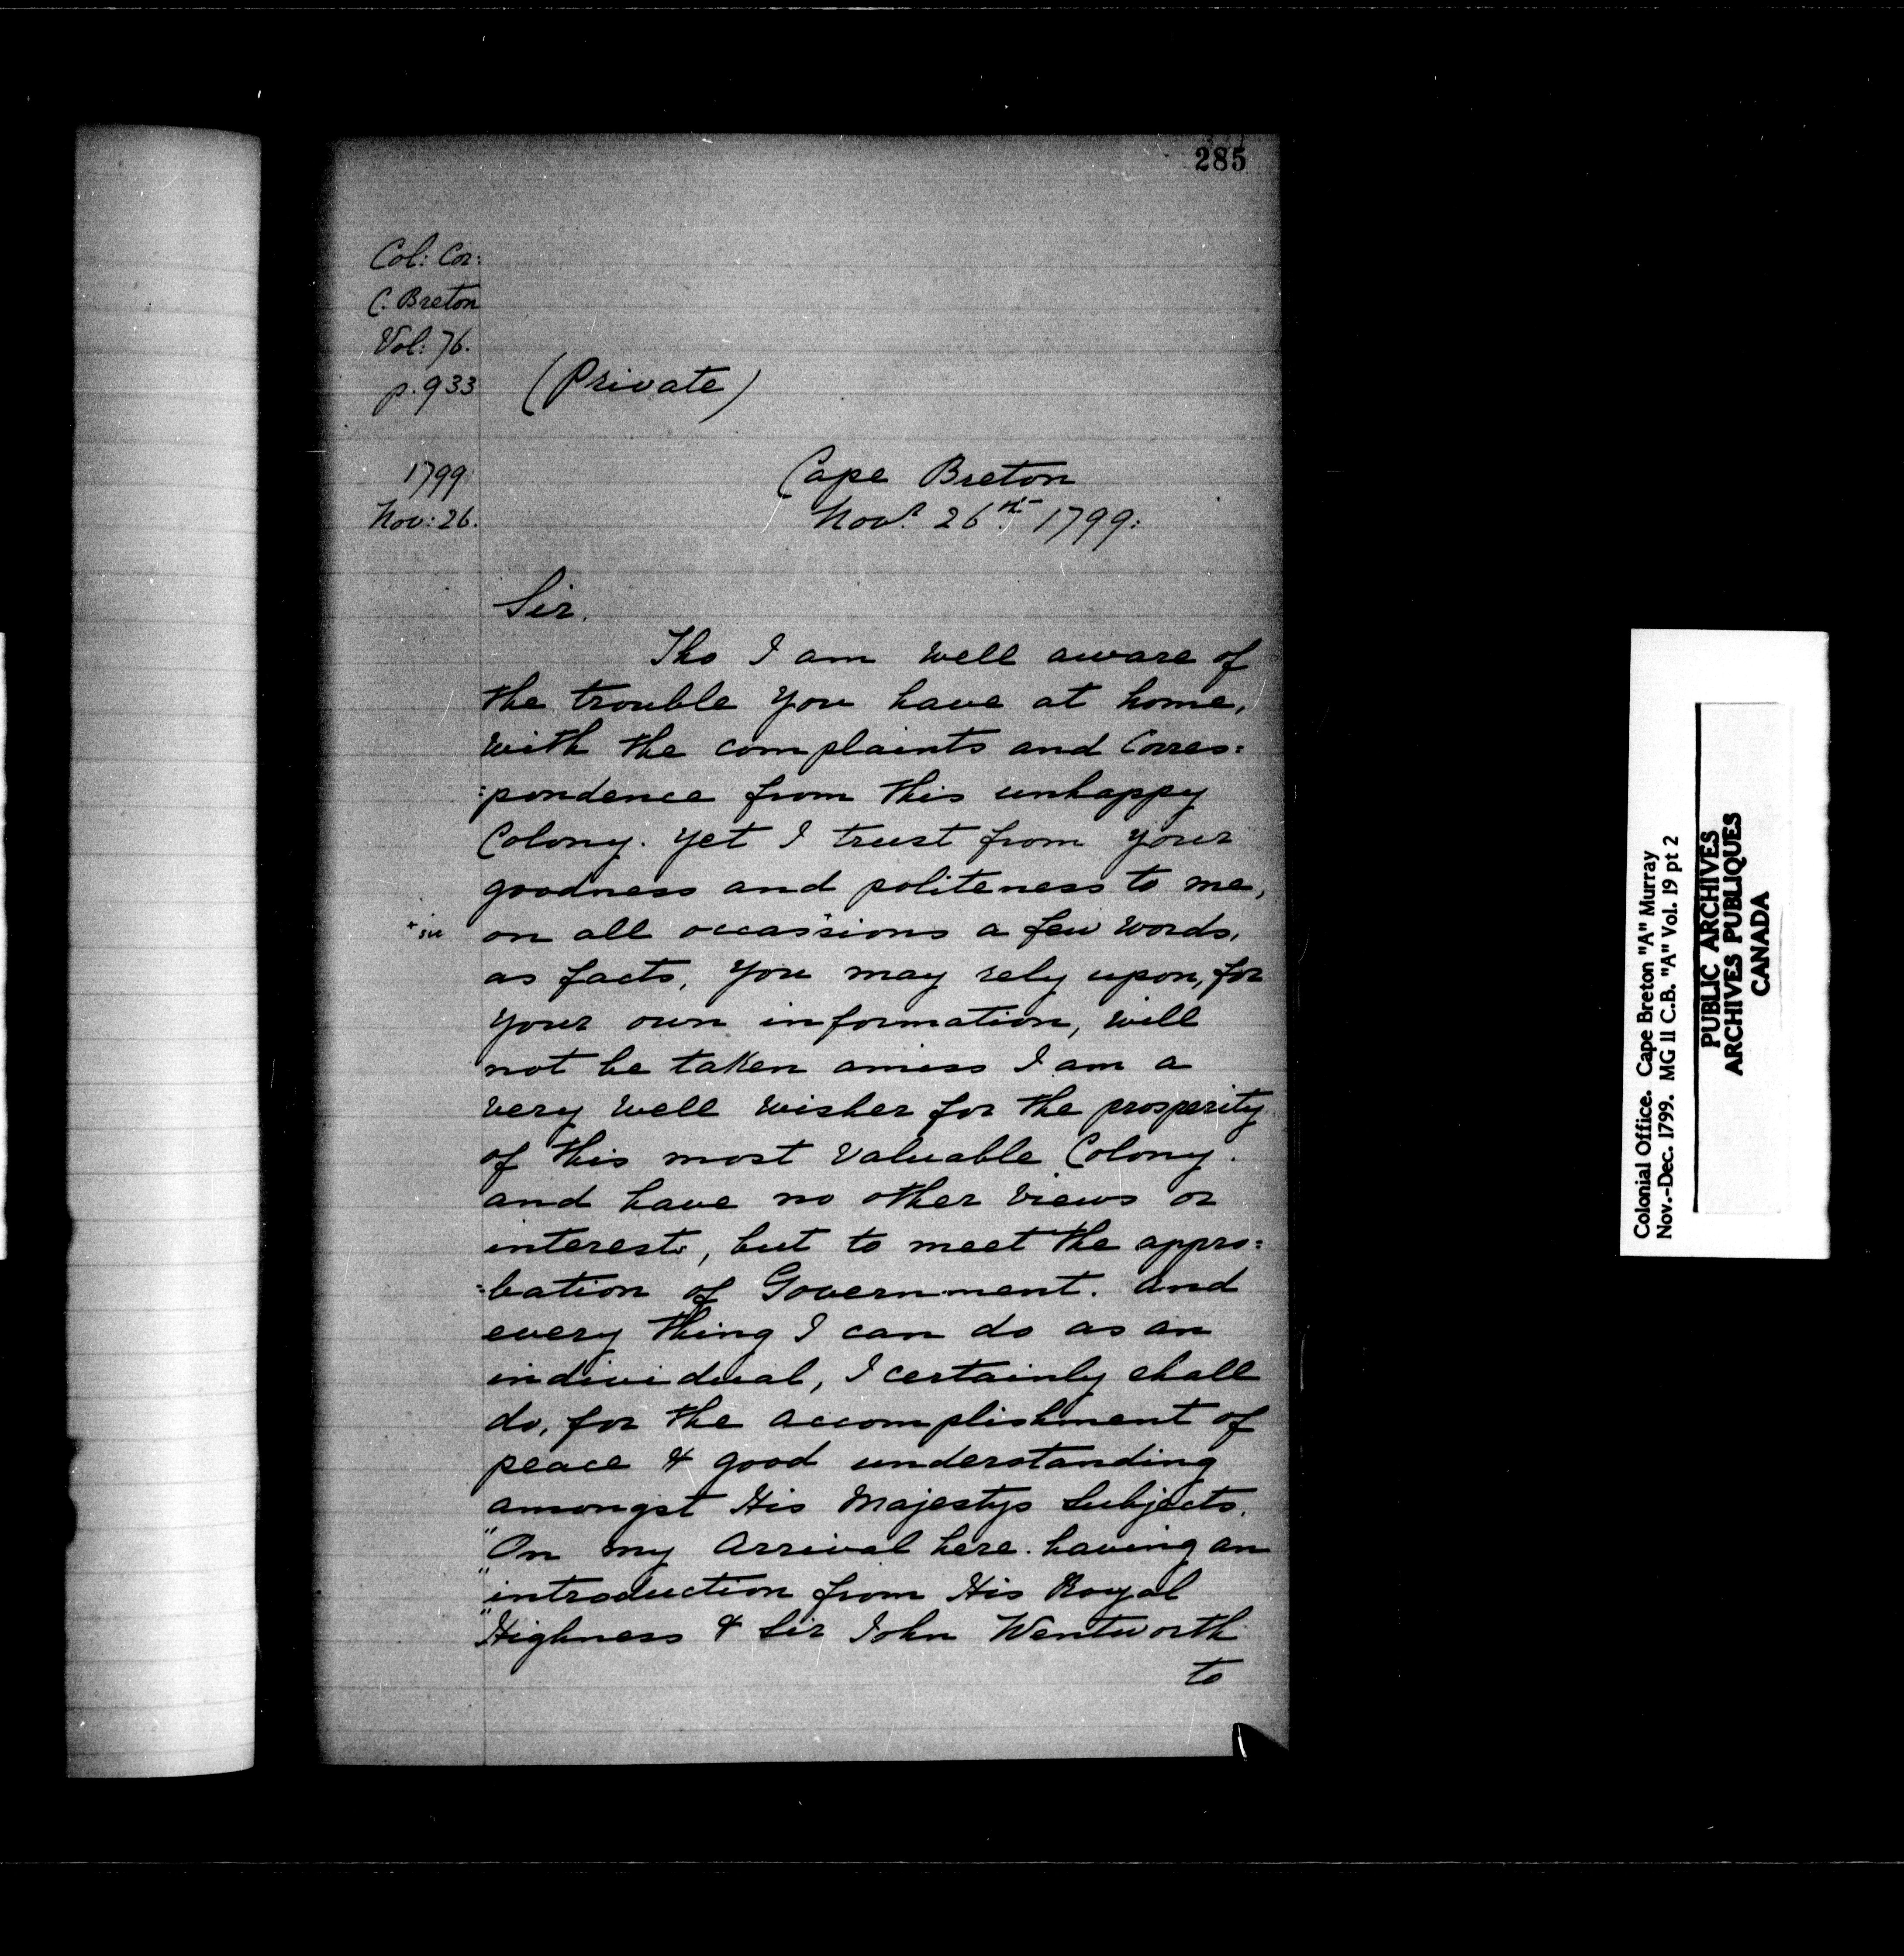 285
Col: Cor:
C. Breton
Vol: 76.
p. 933
(Private)
1799.
Nov: 26.
Cape Breton
Novr. 26th 1799:
Sir,
Tho I am well aware of
the trouble you have at home,
with the complaints and Corres:
:pondence from this unhappy
Colony. yet I trust from your
goodness and politeness to me,
+ in
on all occassions a few words,
as facts, you may rely upon, for
your own information, will
not be taken amiss I am a
very well wisher for the prosperity
of this most valuable Colony.
and have no other views or
interest, but to meet the appro:
:bation of Government. and
every thing I can do as an
individual, I certainly shall
do, for the accomplishment of
peace & good understanding
amongst His Majestys Subjects.
"On my Arrival here. having an
"introduction from His Royal
"Highness & Sir John Wentworth
to
Colonial Office. Cape Breton "A" Murray
Nov.-Dec. 1799. MG 11 C.B. "A" Vol. 19 pt 2
PUBLIC ARCHIVES
ARCHIVES PUBLIQUES
CANADA